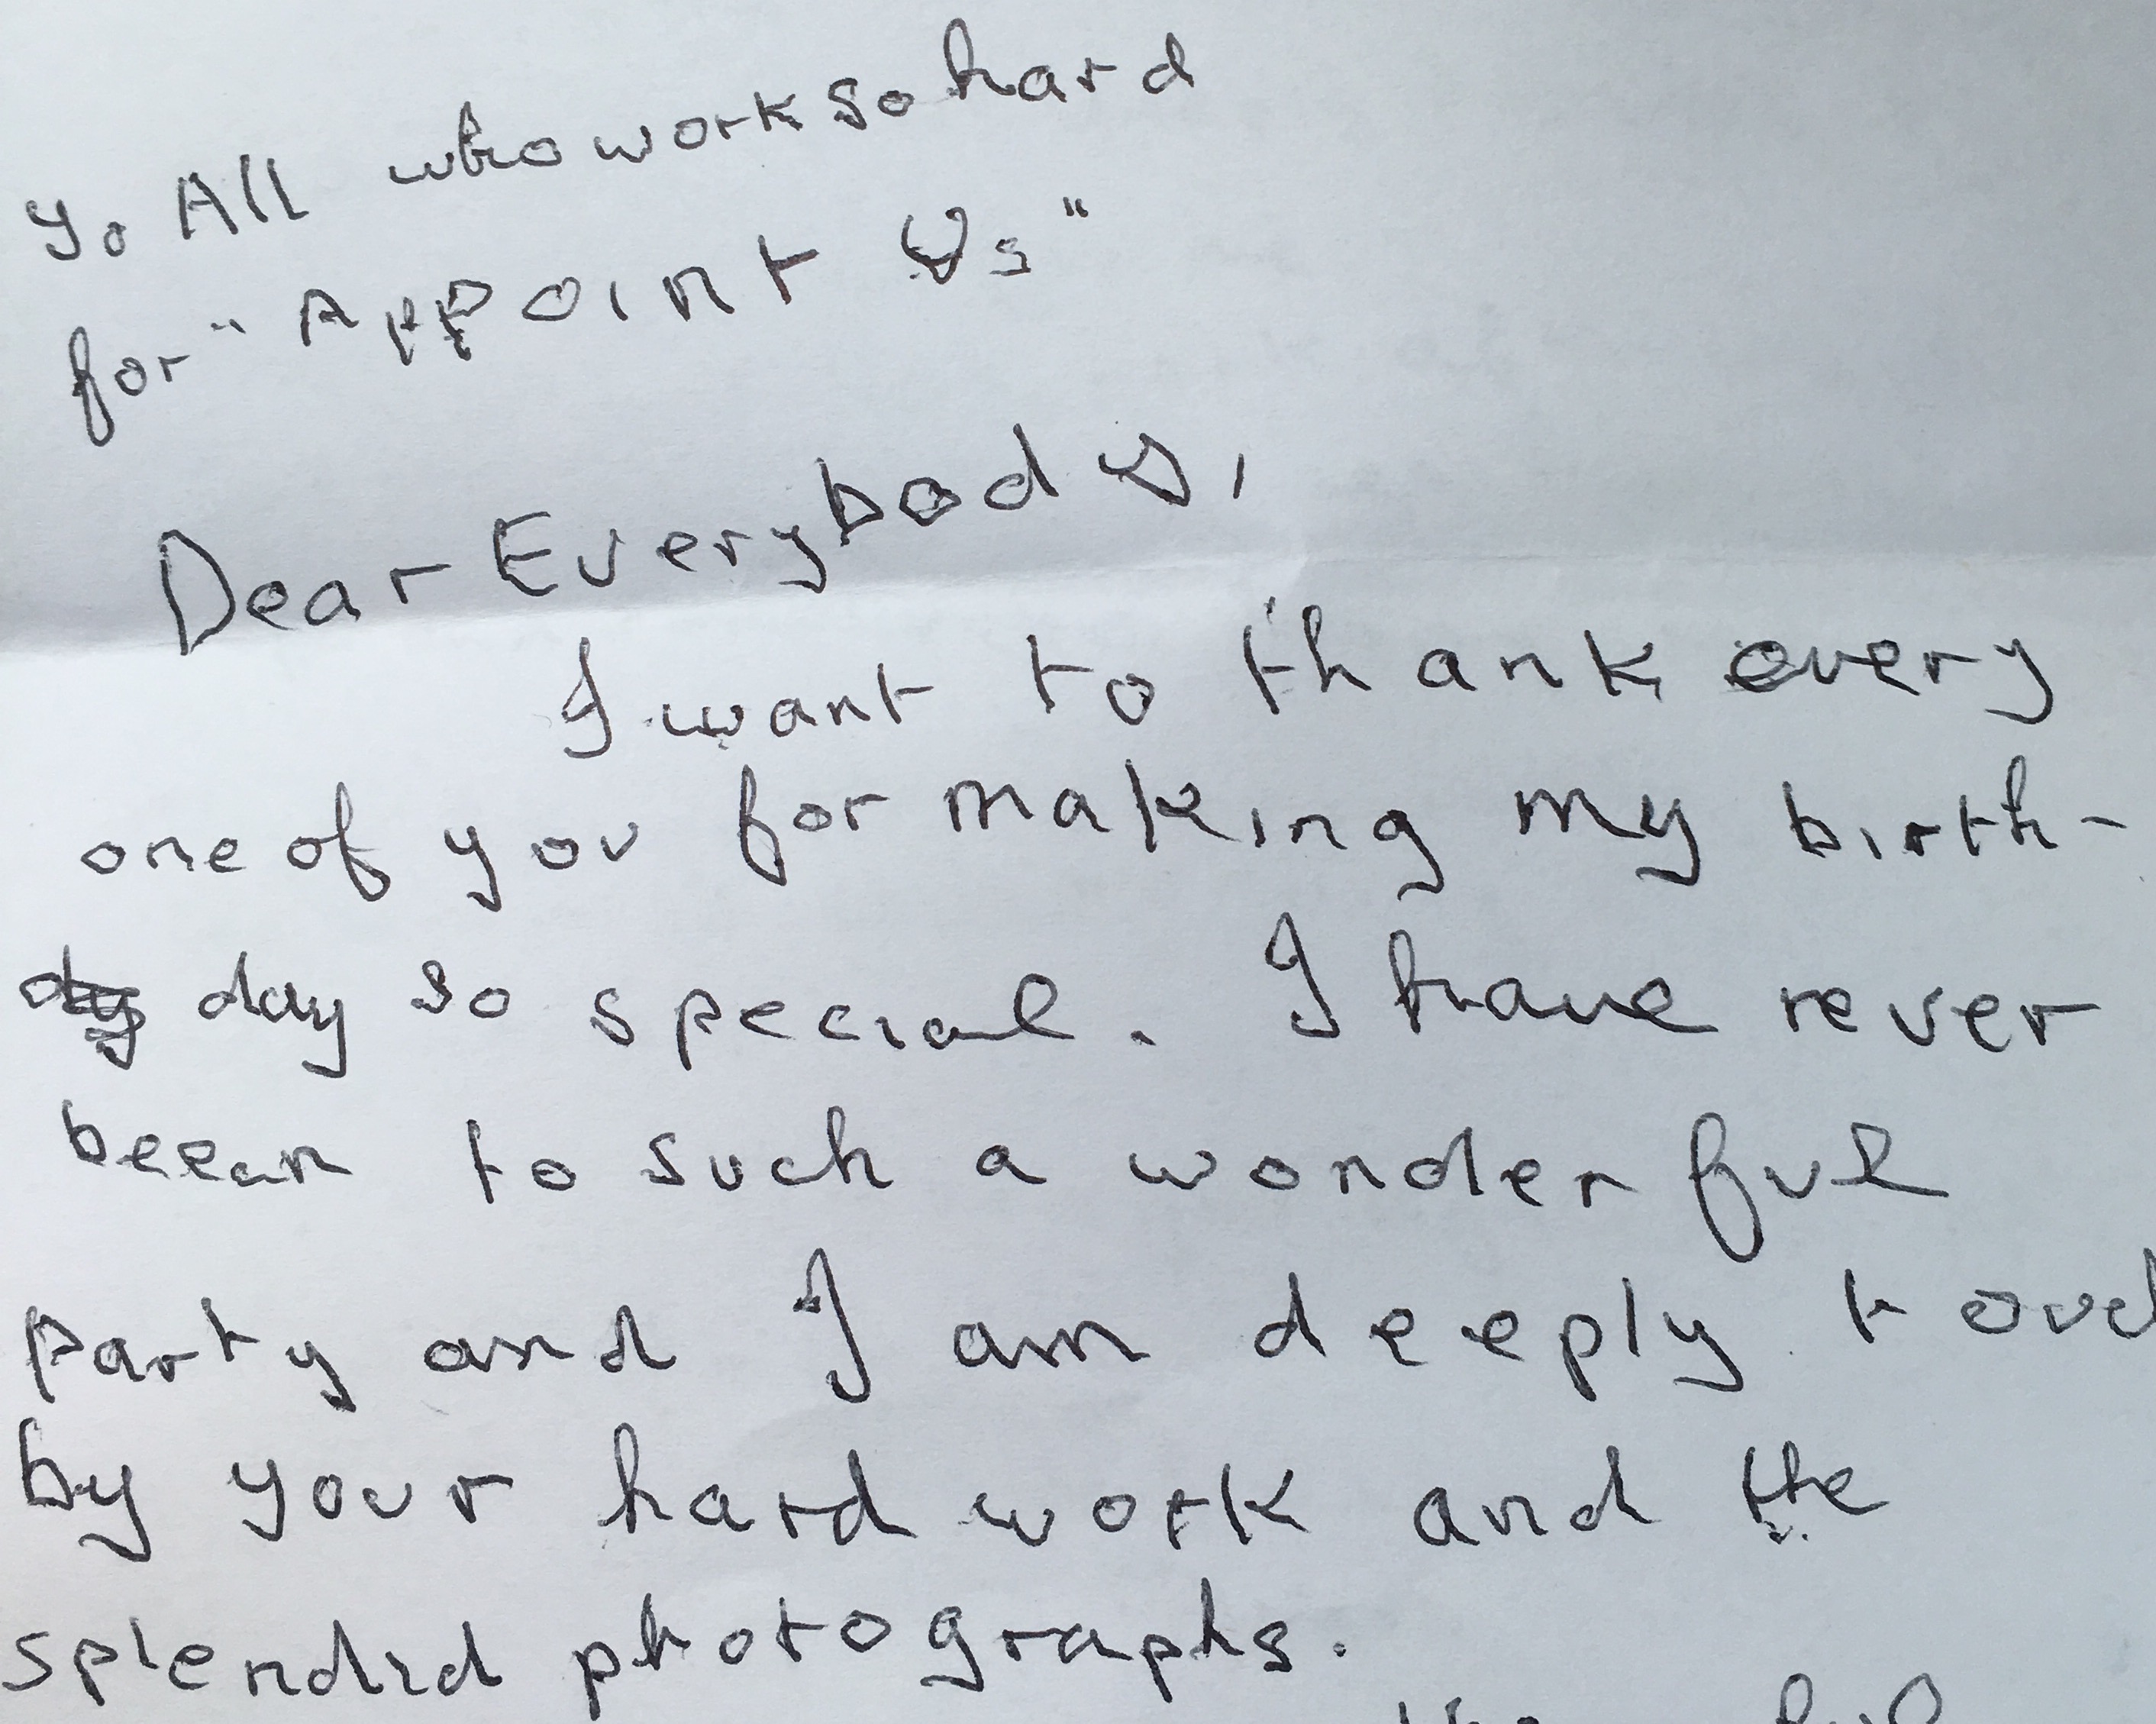 To All who work so hard
for "Appoint Us"
Dear Everybody,
I want to thank every
one of you for making my birth-
day so special. I have never
been to such a wonderful
Party and I am deeply touc
by your hard work and the
splendid photographs.